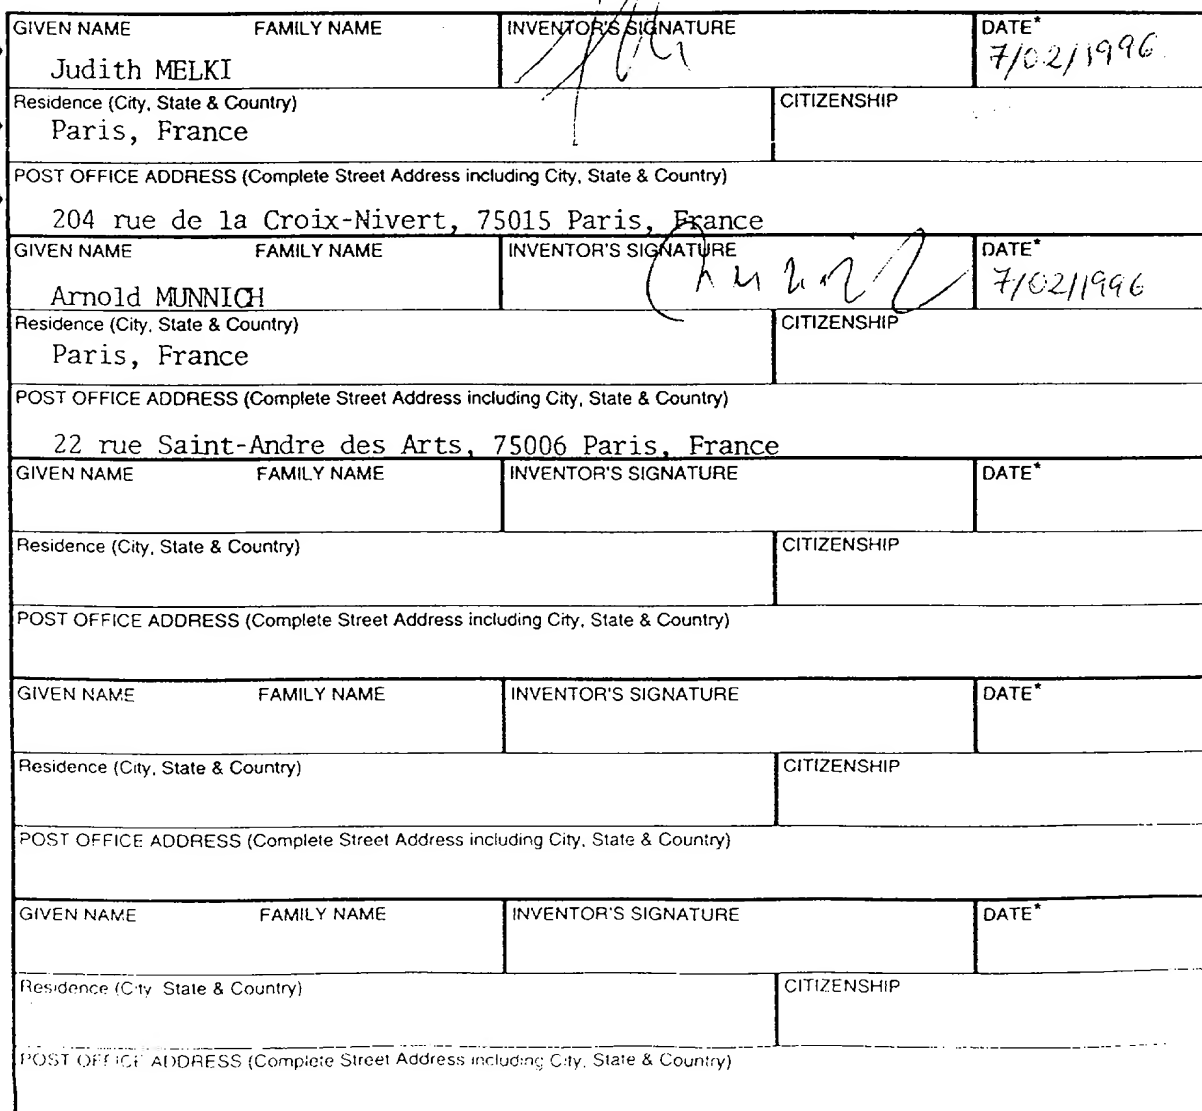 GIVEN NAME FAMILY NAME INVENTOR'S SIGNATURE DATE*
Judith MELKI 7/02/1996
Residence (City, State & Country) CITIZENSHIP
Paris, France
POST OFFICE ADDRESS (Complete Street Address including City, State & Country)
204 rue de la Croix-Nivert, 75015 Paris, France
GIVEN NAME FAMILY NAME INVENTOR'S SIGNATURE DATE*
Arnold MUNNICH 7/02/1996
Residence (City, State & Country) CITIZENSHIP
Paris, France
POST OFFICE ADDRESS (Complete Street Address including City, State & Country)
22 rue Saint-Andre des Arts, 75006 Paris, France
GIVEN NAME FAMILY NAME INVENTOR'S SIGNATURE DATE*
Residence (City, State & Country) CITIZENSHIP
POST OFFICE ADDRESS (Complete Street Address including City, State & Country)
GIVEN NAME FAMILY NAME INVENTOR'S SIGNATURE DATE*
Residence (City, State & Country) CITIZENSHIP
POST OFFICE ADDRESS (Complete Street Address including City, State & Country)
GIVEN NAME FAMILY NAME INVENTOR'S SIGNATURE DATE*
Residence (City State & Country) CITIZENSHIP
POST OFFICE ADDRESS (Complete Street Address including City, State & Country)